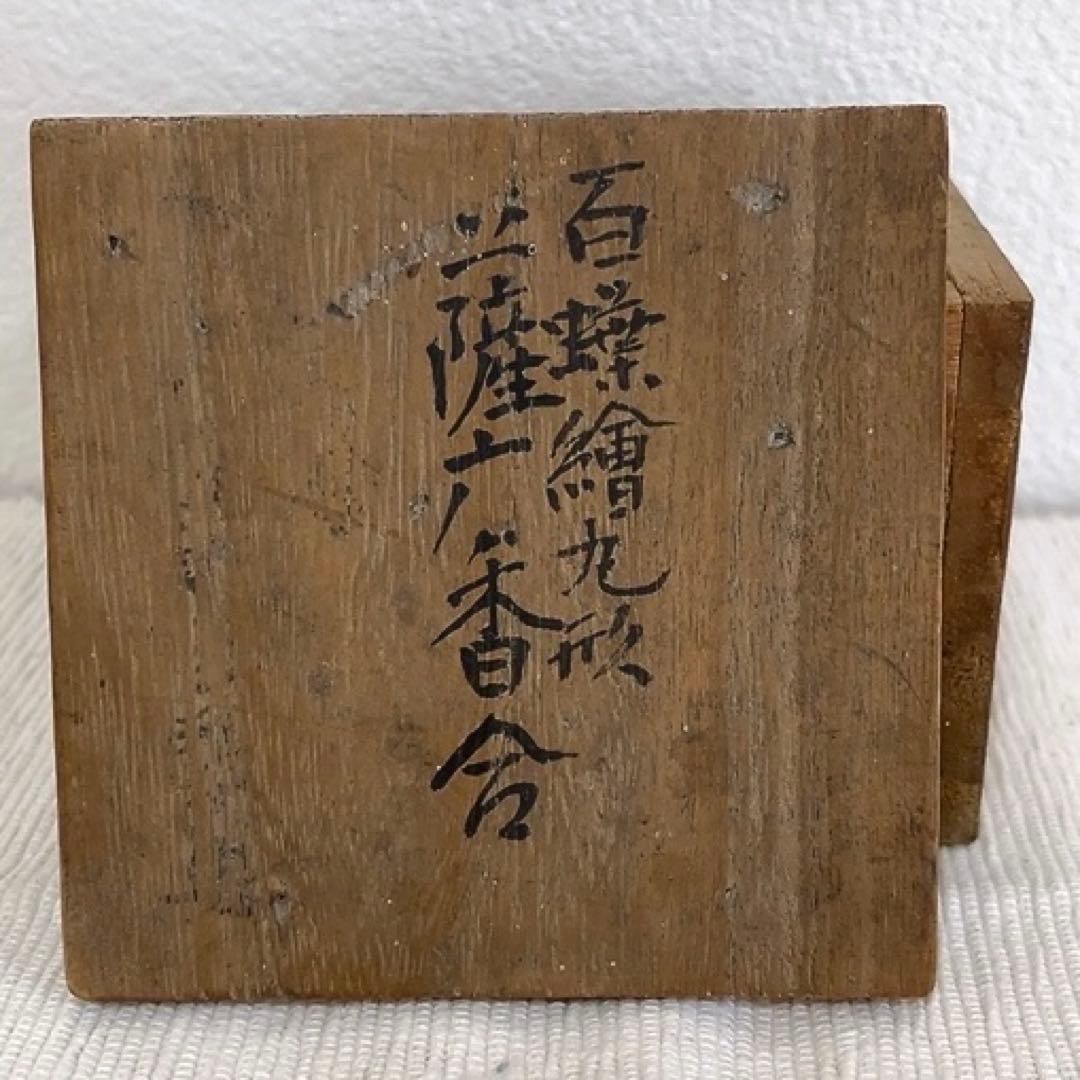 百蝶繪丸形
薩广香合